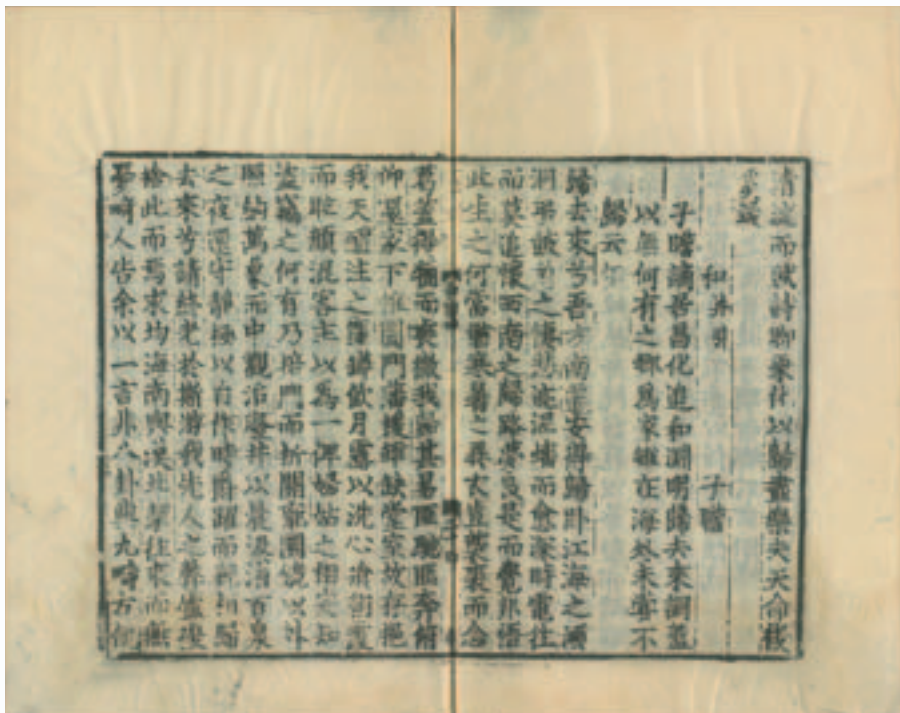 清流而賦詩聊乘化以歸盡樂夫天命復
奚疑
和并引 子瞻
子瞻謫居昌化追和淵明歸去來詞蓋
以無何有之鄉為家雖在海外未嘗不
歸云爾
歸去來兮吾方南遷安得歸卧江海之澒
洞弔鼓角之悽悲迹泥蟠而愈深時電往
而莫追懷西南之歸路夢良是而覺非悟
此生之何常猶寒暑之異衣豈襲裘而念
葛蓋得觕而喪微我歸甚易匪馳匪奔俯
仰還家下帷闔門藩援雖缺堂室故存挹
我天醴注之窪罇飲月露以洗心飡朝霞
而眩顏混客主以為一俾婦姑之相安知
盜竊之何有乃掊門而折關廓圜鏡以外
照納萬象而中觀治廢井以晨汲滃百泉
之夜還守靜極以自作時爵躍而鯢桓歸
去來兮請終老於斯游我先人之弊廬復
捨此而焉求均海南與漠北挈往來而無
憂畸人告余以一言非八卦與九疇方飢